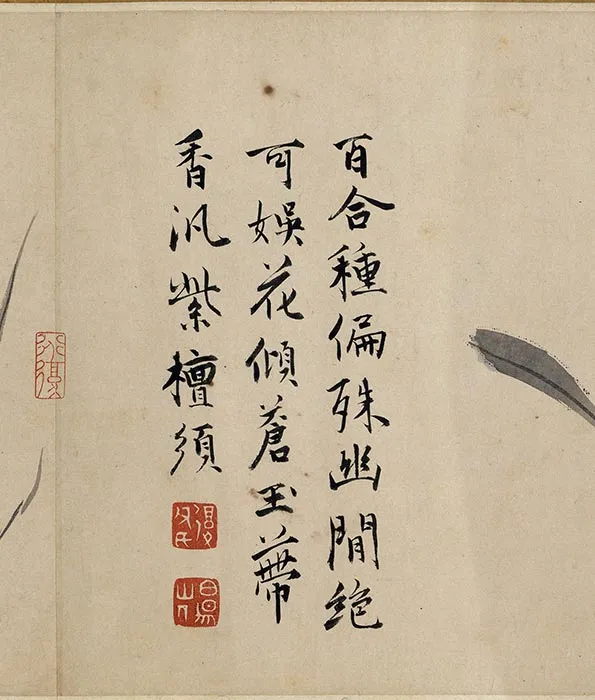 百合種偏殊幽閒絶
可娛花傾蒼玉蒂
香汎紫檀須